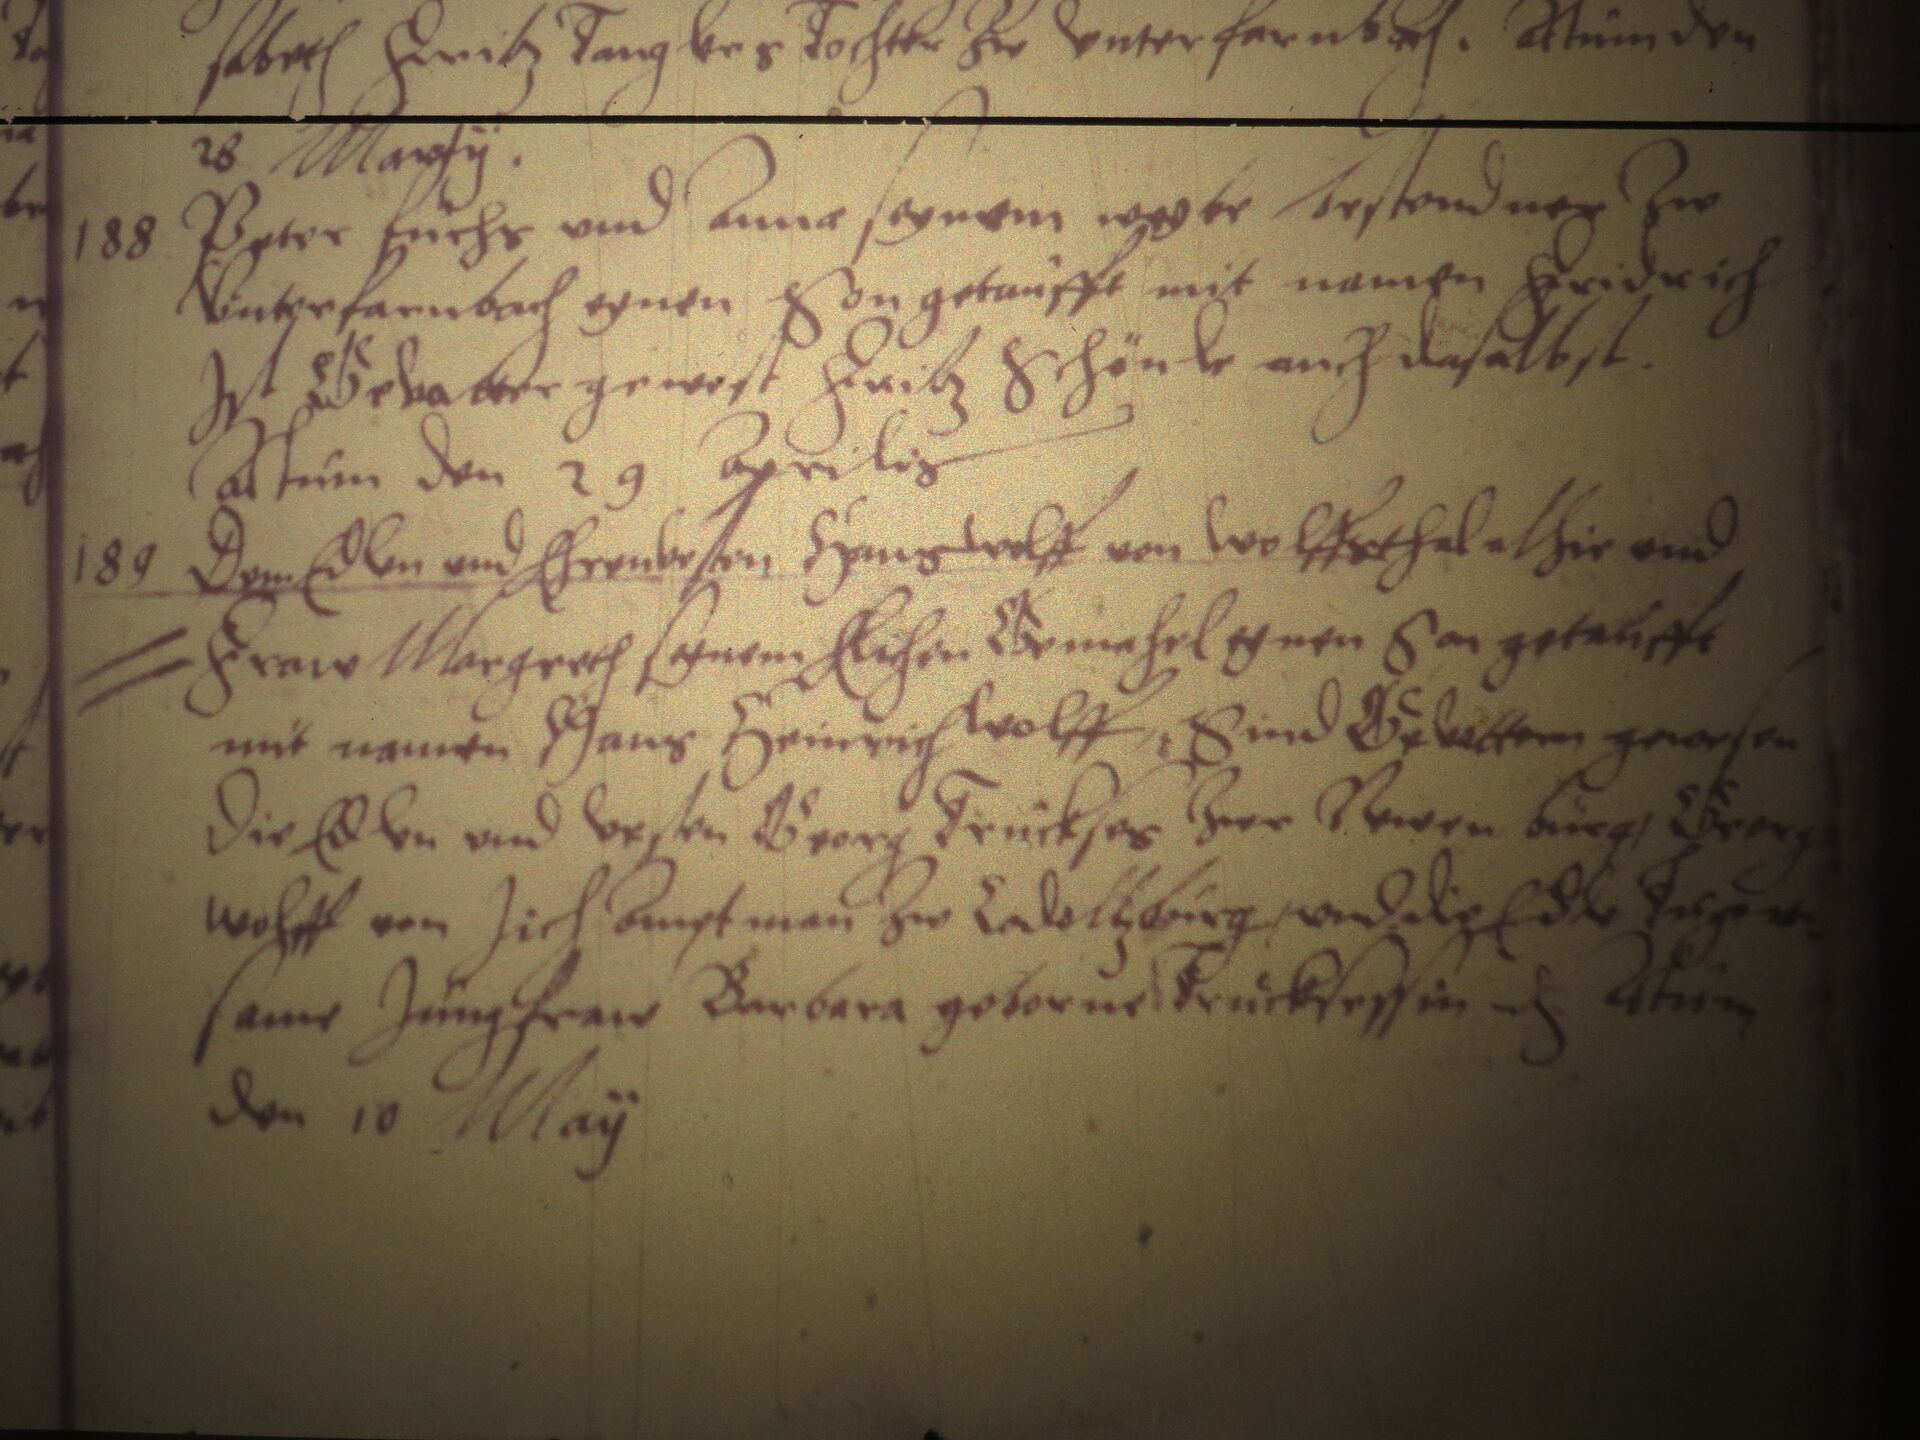 sabeth Fritz Tangkers Tochter Zw Unterfarnbach. Actum den
28 Martÿ.
188 Peter fuchs und Anna seynem weybe bestendner Zw
Unterfarnbach eynen Son getaufft mit namen Fridrich
Ist Gevatter gewest Fritz Schönle auch daselbst.
Actum den 29 Aprilis
189 Dem Edlen und Ehrenvesten Hanns Wolff von Wolffsthal alhie und
Fraw Margreth seynem Elichen Gemahel eynen Son getaufft
mit namen Hans Heinrich Wolff, Sind Gevattern gewesen
Die Edlen und vesten Georg Truckses Zur Newenburg, Georg
Wolff von Amptman Zw Cadoltzburg, und die Edle Tugent
same Jungfraw Barbara geborne Trucksessin Actum
den 10 Maÿ